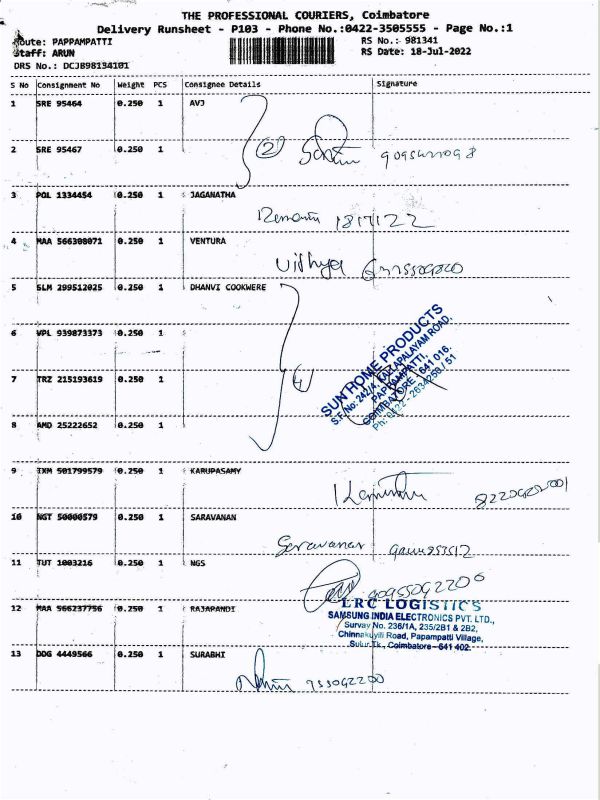 THE PROFESSIONAL COURIERS, Coimbatore
Delivery Runsheet - P103 - Phone No.:0422-3505555 - Page No.:1
Route: PAPPAMPATTI
RS No.:- 981341
Staff: ARUN
RS Date: 18-Jul-2022
DRS No.: DCJB98134101
S No Consignment No Weight PCS Consignee Details Signature
1 SRE 95464 0.250 1 AVJ
2
2 SRE 95467 0.250 1
3 PGL 1334454 0.250 1 JAGANATHA
18/7/22
4 MAA 566308071 0.250 1 VENTURA
Vidhya
5 SLM 299512025 0.250 1 DHANVI COOKWERE
6 VPL 939873373 0.250 1
7 TRZ 215193619 0.250 1
4
SUN HOME PRODUCTS
S.F.No: 242/4, KALLAPALAYAM ROAD,
PAPPAMPATTI,
COIMBATORE - 641 016.
Ph: 0422 - 2634250 / 51
8 AMD 25222652 0.250 1
9 IXM 501799579 0.250 1 KARUPASAMY
10 NGT 50000579 0.250 1 SARAVANAN
Saravanan
11 TUT 1003216 0.250 1 NGS
12 MAA 566237756 0.250 1 RAJAPANDI
LRC LOGISTICS
SAMSUNG INDIA ELECTRONICS PVT. LTD.,
Survay No. 236/1A, 235/2B1 & 2B2,
Chinnakuyili Road, Papampatti Village,
Sulur Tk., Coimbatore - 641 402.
13 DDG 4449566 0.250 1 SURABHI